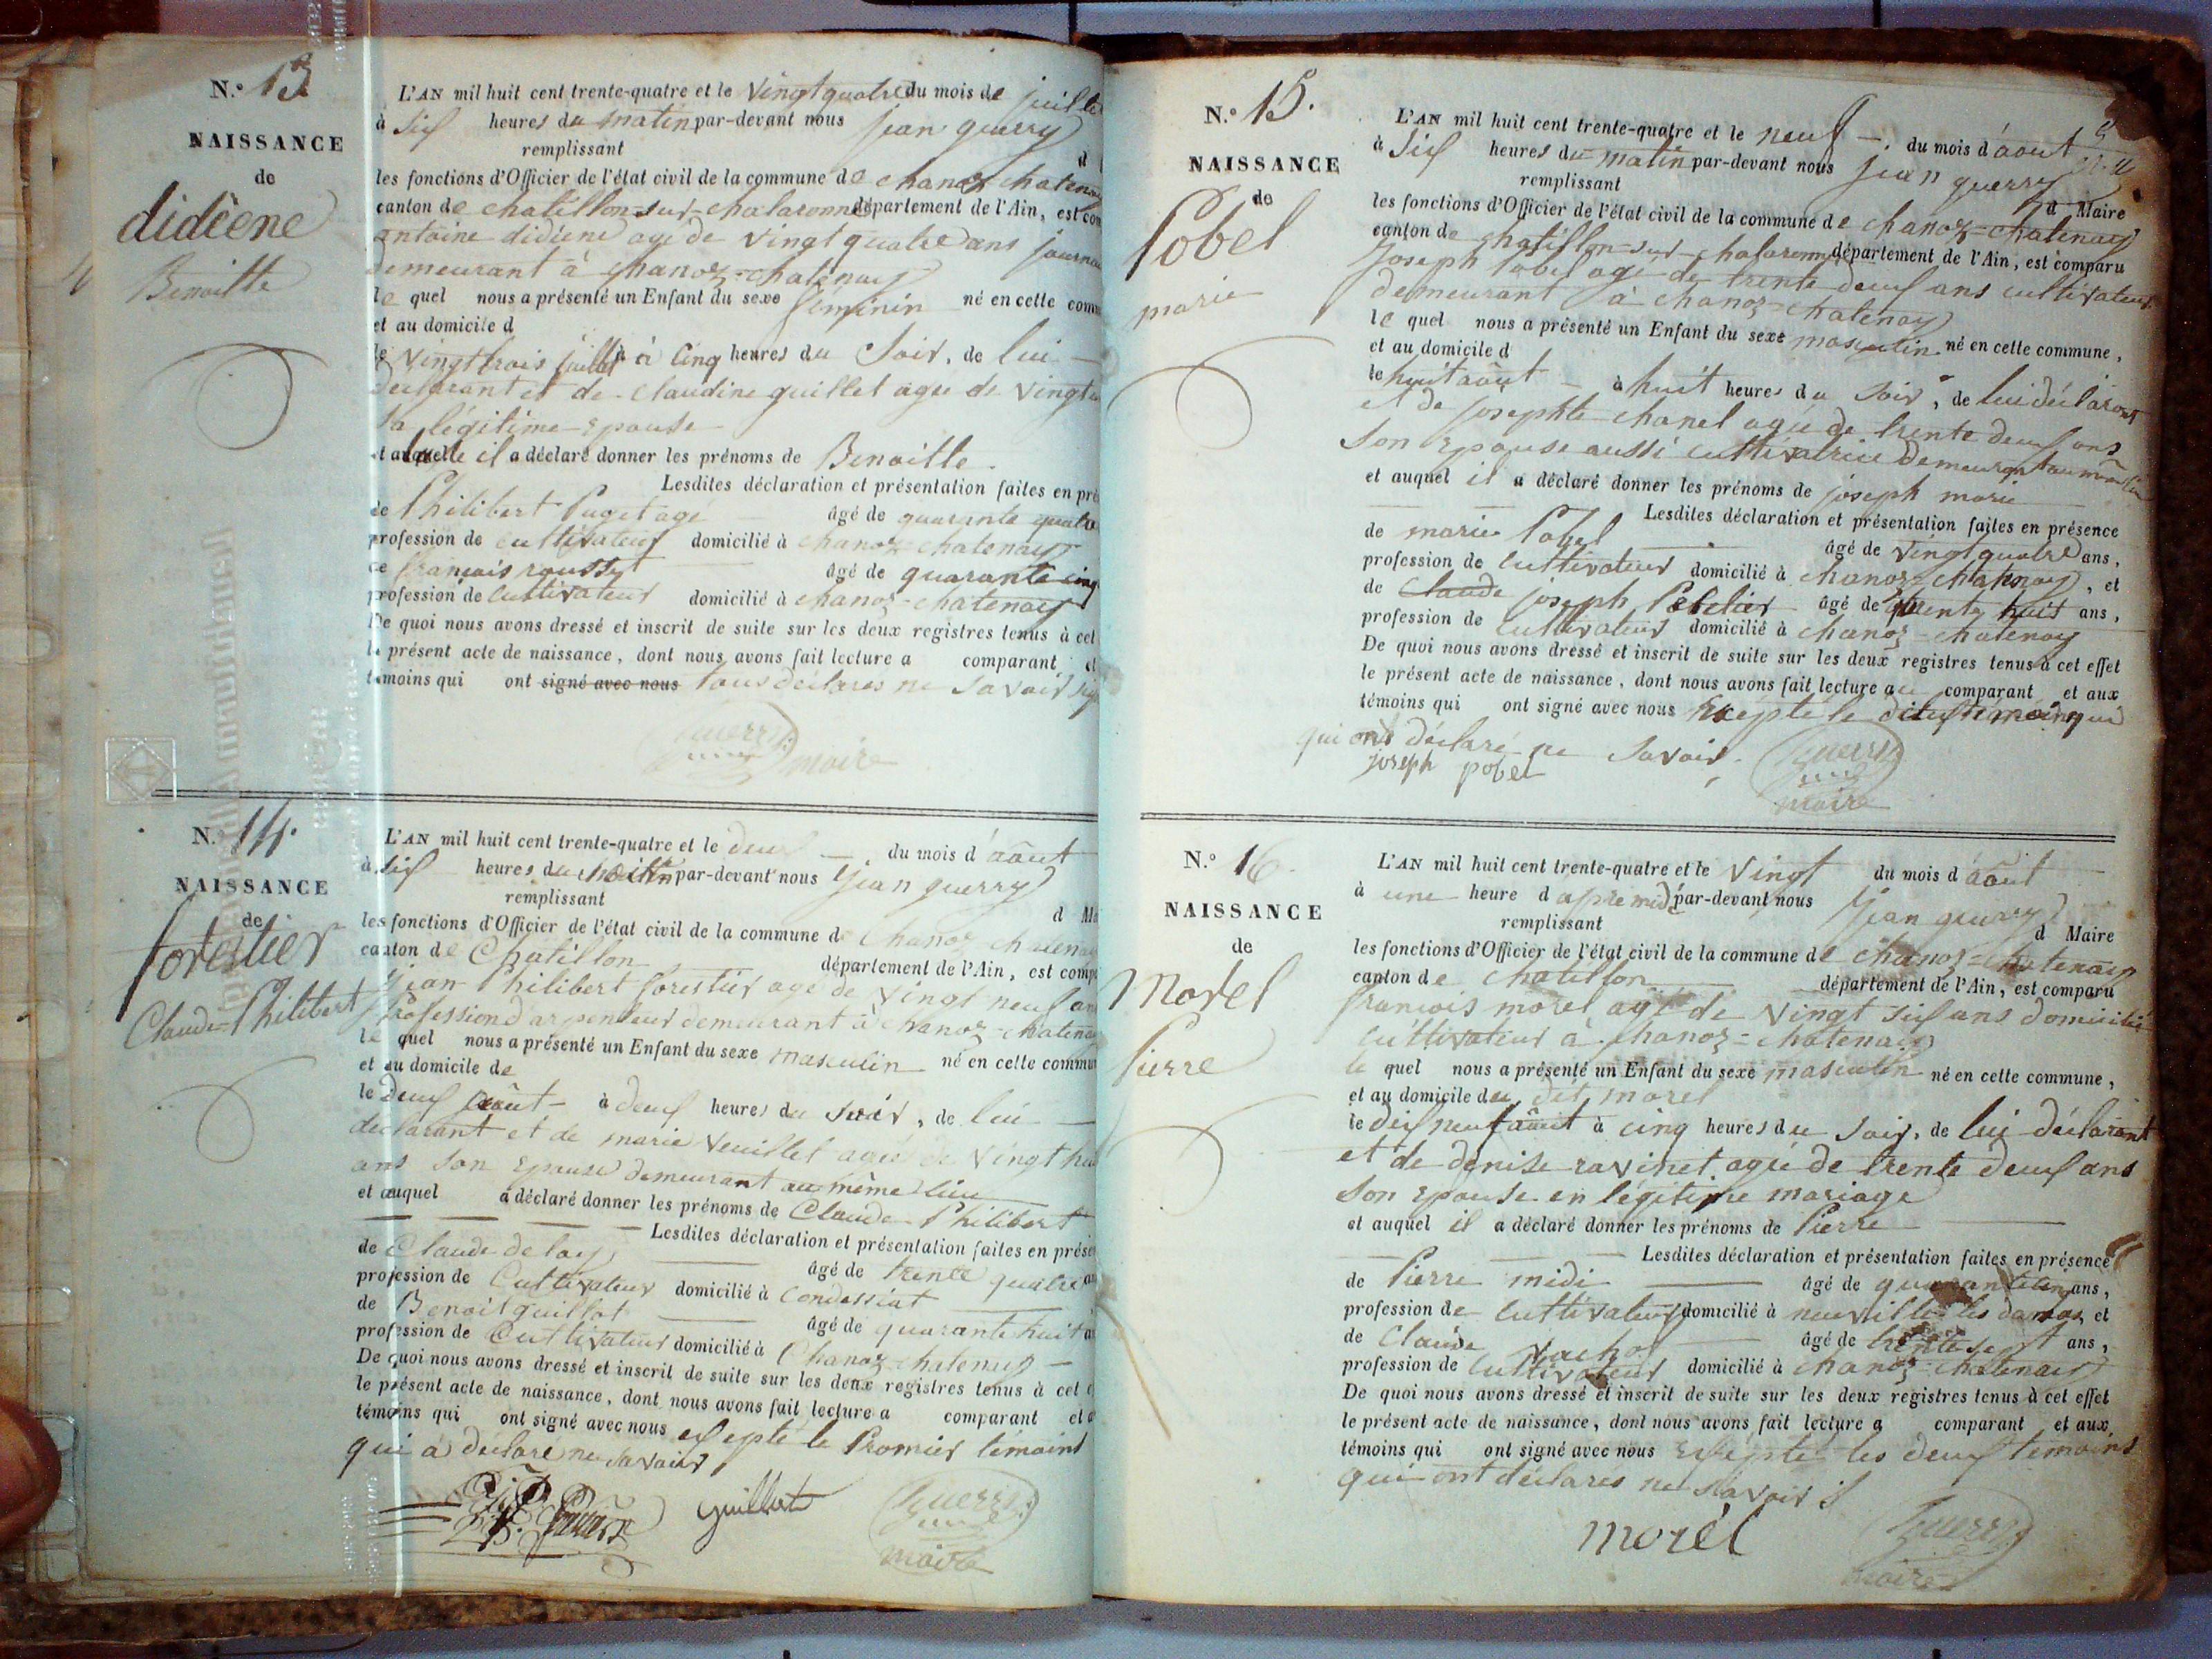 N.° 13
NAISSANCE
de
didiene
Benoitte
L'AN mil huit cent trente-quatre et le vingt quatre du mois de juillet
à Six heures du matin par-devant nous jean guerry
remplissant d
les fonctions d'Officier de l'état civil de la commune de chanoz chatenay
canton de chatillon-sur-chalaronne département de l'Ain, est com
antoine didiene agé de vingt quatre ans journa
demeurant à chanoz-chatenay
le quel nous a présenté un Enfant du sexe féminin né en cette comm
et au domicile d
le vingt trois juillet à cinq heures du Soir, de lui
déclarant et de claudine guillet agée de vingt
sa légitime Epouse
et a laquelle il a déclaré donner les prénoms de Benoitte
Lesdites déclaration et présentation faites en pré
de Philibert Puget agé âgé de quarante quatre
profession de cultivateur domicilié à chanoz chatenay
de françois rousset âgé de quarante cinq
profession de cultivateur domicilié à chanoz-chatenay
De quoi nous avons dressé et inscrit de suite sur les deux registres tenus à cet
le présent acte de naissance, dont nous avons fait lecture a comparant et
témoins qui ont signé avec nous tous déclarés ne savoir sig
guerry
maire
N.° 14.
NAISSANCE
de
forestier
Claude-Philibert
L'AN mil huit cent trente-quatre et le deux du mois d'août
à six heures du matin par-devant nous jean guerry
remplissant d Ma
les fonctions d'Officier de l'état civil de la commune d chanoz chatenay
canton de Chatillon département de l'Ain, est comp
jean Philibert forestier agé de vingt neuf an
profession d'arpenteur demeurant à chanoz-chatenay
le quel nous a présenté un Enfant du sexe masculin né en cette commu
et au domicile de
le deux août à deux heures du soir, de lui
déclarant et de marie veuillet agée de vingt hui
ans son Epouse demeurant au même lieu
et auquel a déclaré donner les prénoms de Claude Philibert
Lesdites déclaration et présentation faites en prése
de Claude delay âgé de trente quatre an
profession de Cultivateur domicilié à Condessiat
de Benoit guillot âgé de quarante huit a
profession de Cultivateur domicilié à Chanoz-chatenay
De quoi nous avons dressé et inscrit de suite sur les deux registres tenus à cet e
le présent acte de naissance, dont nous avons fait lecture a comparant et a
témoins qui ont signé avec nous excepté le Promier témoins
qui à déclaré ne savoir
guillot
guerry
maire
N.° 15.
NAISSANCE
de
Pobel
marie
L'AN mil huit cent trente-quatre et le neuf du mois d'août
à six heures du matin par-devant nous jean guerry
remplissant d Maire
les fonctions d'Officier de l'état civil de la commune de chanoz-chatenay
canton de chatillon-sur-chalaronne département de l'Ain, est comparu
joseph Pobel agé de trente deux ans cultivateur
demeurant à chanoz-chatenay
le quel nous a présenté un Enfant du sexe masculin né en cette commune,
et au domicile d
le huit août à huit heures du soir, de lui déclarant
et de josephte chanel agée de trente deux ans
son Epouse aussi cultivatrice demeurant au même lieu
et auquel il a déclaré donner les prénoms de joseph marie
Lesdites déclaration et présentation faites en présence
de marie Pobel âgé de vingt quatre ans,
profession de cultivateur domicilié à chanoz-chatenay, et
de Claude joseph âgé de trente huit ans,
profession de cultivateur domicilié à chanoz-chatenay
De quoi nous avons dressé et inscrit de suite sur les deux registres tenus à cet effet
le présent acte de naissance, dont nous avons fait lecture au comparant et aux
témoins qui ont signé avec nous Excepté le témoin qui
qui ont déclaré ne savoir.
joseph pobel
guerry
maire
N.° 16
NAISSANCE
de
Morel
Pierre
L'AN mil huit cent trente-quatre et le vingt du mois d'août
à une heure d apre midi par-devant nous jean guerry
remplissant d Maire
les fonctions d'Officier de l'état civil de la commune de chanoz-chatenay
canton de chatillon département de l'Ain, est comparu
françois morel agé de vingt six ans domicilié
cultivateur à chanoz-chatenay
le quel nous a présenté un Enfant du sexe masculin né en cette commune,
et au domicile du dit morel
le dix neuf août à cinq heures du soir, de lui déclarant
et de denise ravinet agée de trente deux ans
son Epouse en légitime mariage
et auquel il a déclaré donner les prénoms de Pierre
Lesdites déclaration et présentation faites en présence
de Pierre midi âgé de quarante cinq ans,
profession de cultivateur domicilié à neuville les dames et
de Claude vachot âgé de trente sept ans,
profession de cultivateur domicilié à chanoz-chatenay
De quoi nous avons dressé et inscrit de suite sur les deux registres tenus à cet effet
le présent acte de naissance, dont nous avons fait lecture a comparant et aux
témoins qui ont signé avec nous Excepté les deux témoins
qui ont déclarés ne savoir
morel
guerry
maire